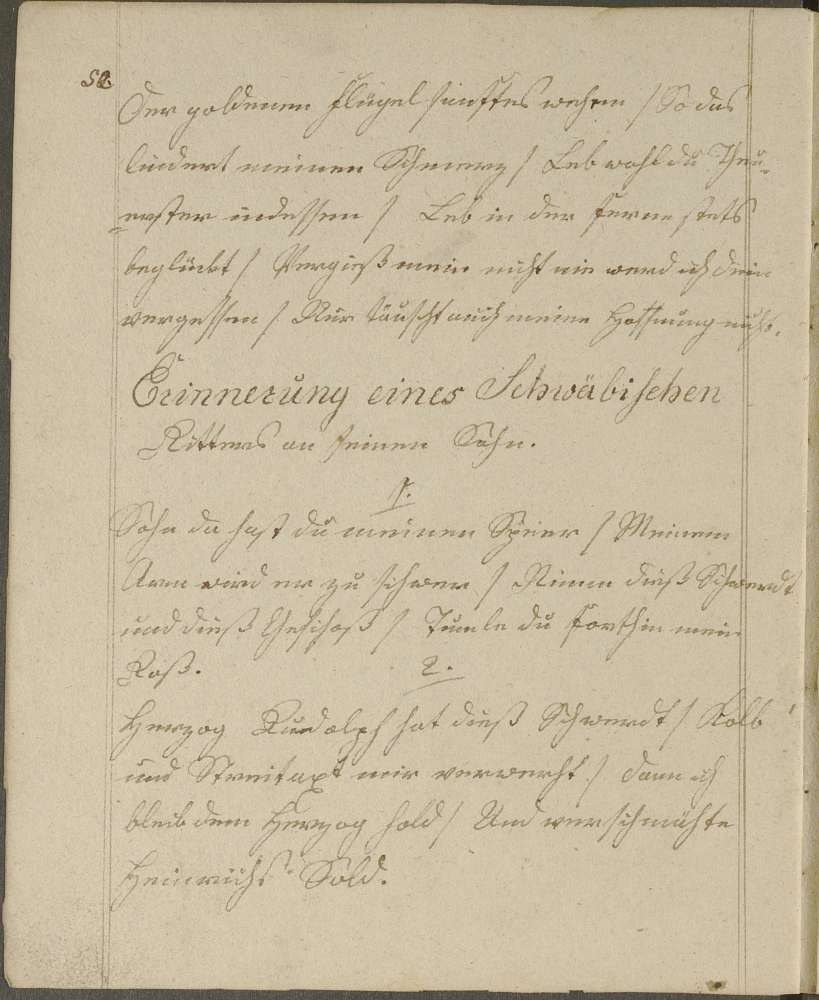 52.
Der goldenen Flügel sanftes wehen / So das
lindert meinen Schmerz / Leb wohl du Theu-
-erster indessen / Leb in der ferne stets
beglückt / Vergieß mein nicht nie werd ich dein
vergessen / Nur täuscht auch meine Hoffnung nicht.
Erinnerung eines Schwäbischen
Ritters an seinen Sohn.
1.
Sohn da hast du meinen Speer / Meinem
Arm wird er zu schwer / Nimm dieß Schwerdt
und dieß Geschoß / Tumle du forthin mein
Roß.
2.
Herzog Rudolph hat dieß Schwerdt / Kolb
und Streitaxt mir verwerht / dann ich
bleib dem Herzog hold / Und verschmähte
Heinrichs Sold.